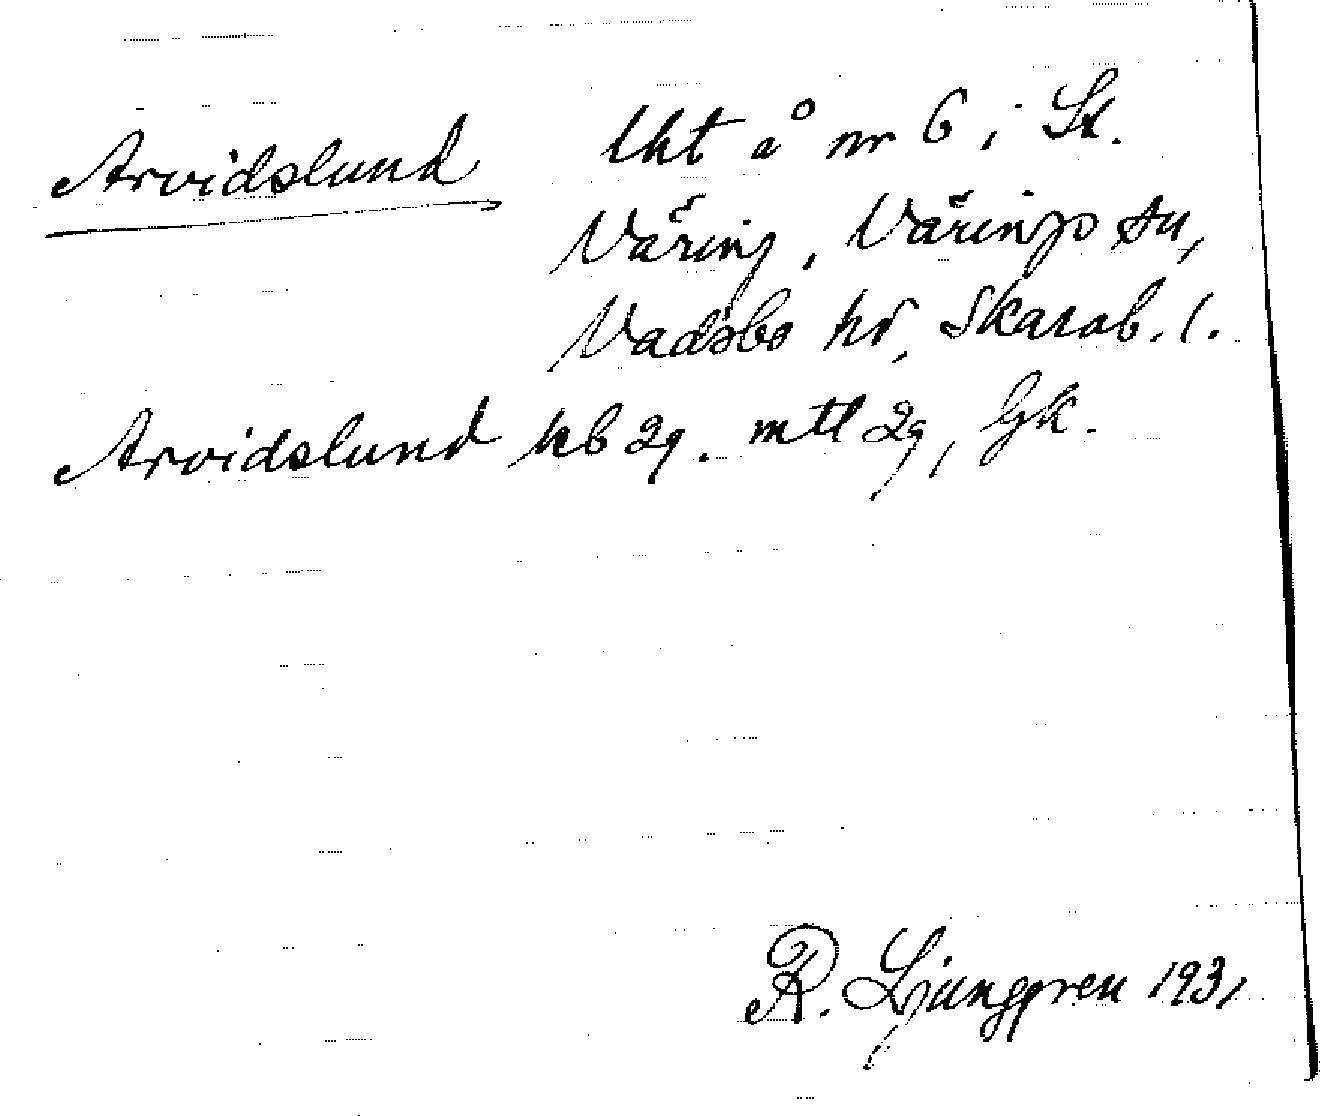 Arvidslund lht å nr 6 i St.
Väring, Värings sn,
Vadsbo hd, Skarab. l.
Arvidslund kb 29. mtl 29, Gk.
R. Ljunggren 1931